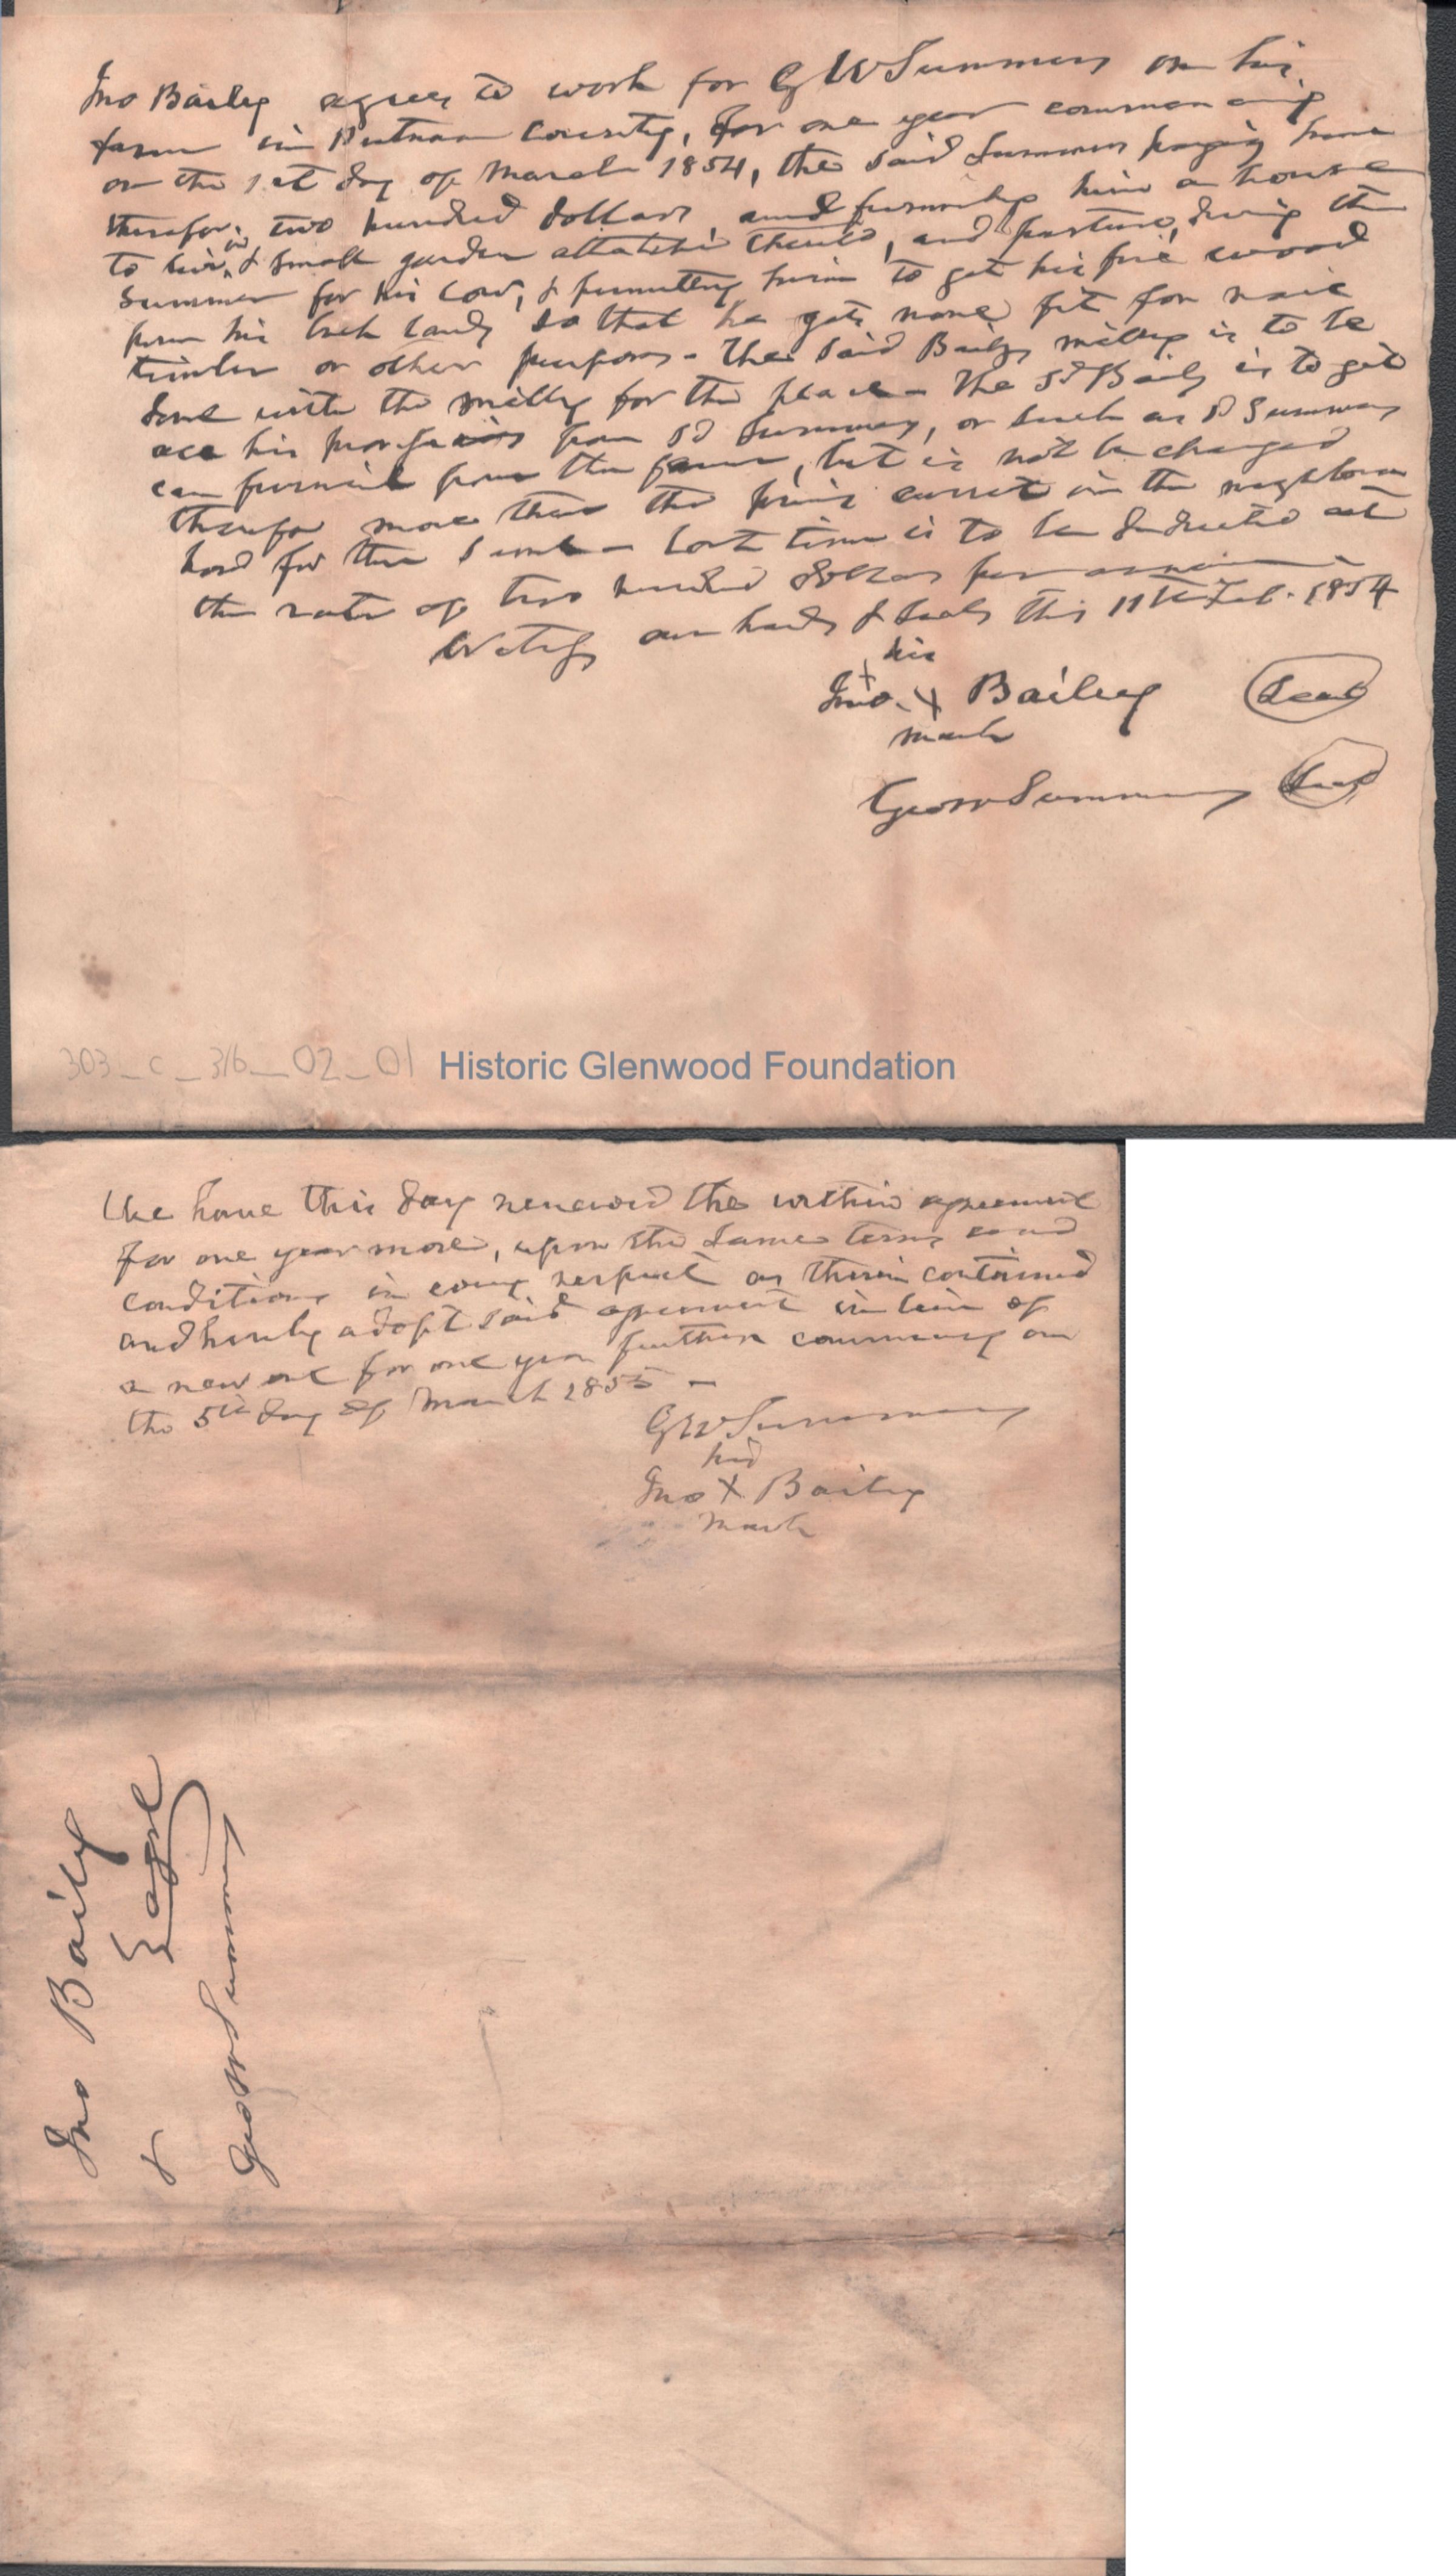 Jno Bailey agrees to work for G W Summers on his
farm in Putnam County, for one year commencing
on the 1st day of March 1854, the said Summers paying him
therefor, two hundred dollars and furnishing him a house
to live in, & small garden attatched thereto, and pasture, during the
Summer for his cow, & permitting him to get his fire wood
from his back lands so that he gets none fit for rail
timber or other purposes - The said Baileys milling is to be
done with the milling for the place - The sd Baily is to get
all his provisions from sd Summers, or such as sd Summers
can furnish from the farm, but is not to be charged
therefor more than the price current in the neighbor
hood for the same - Lost time is to be deducted at
the rate of two hundred dollars per annum -
Witness our hands & seals this 11th Feb. 1854
his
Jno. X Bailey Seal
mark
Geo W Summers Seal
303_C_316_02_01 Historic Glenwood Foundation
We have this day renewed the within agreement
for one year more, upon the same terms and
conditions in every respect as therein contained
and hereby adopt said agreement in lieu of
a new one for one year further commencing on
the 5th day of March 1855 -
G W Summers
his
Jno X Bailey
mark
Jno Baily
&
Geo W Summers